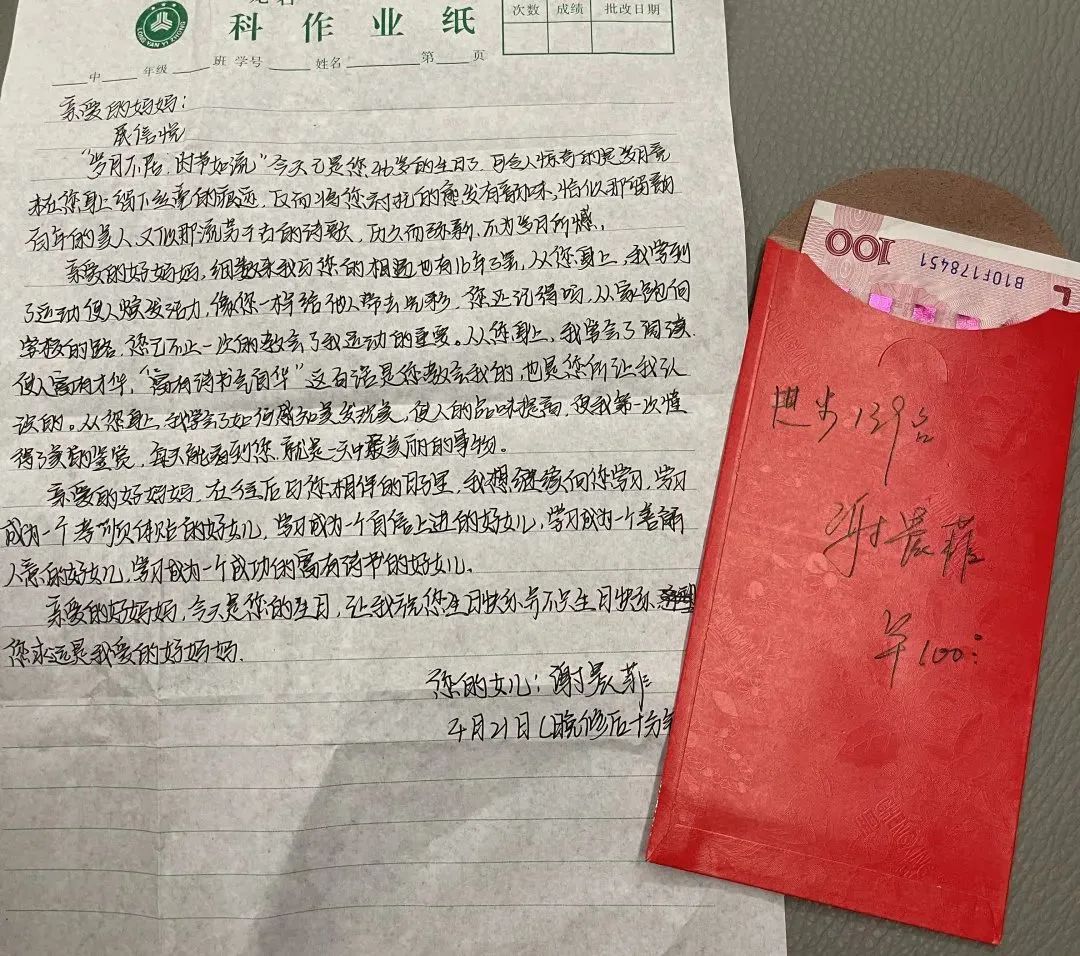 龙岩
LONG YAN YI ZHONG
科作业纸
次数 成绩 批改日期
中 年级 班 学号 姓名 第 页
亲爱的妈妈:
展信悦
"岁月不居,时节如流"今天已是您46岁的生日了,可令人惊奇的是岁月竟
未在您身上留下丝毫的痕迹,反而将您衬托的愈发有韵味,恰似那留韵
百年的美人,又似那流芳千古的诗歌,历久而弥新,不为岁月所憾。
亲爱的好妈妈,细数来我与您的相遇也有16年了罢,从您身上,我学到
了运动使人焕发活力,像您一样给他人带去光彩,您还记得吗,从家跑向
学校的路,您已不止一次的教会了我运动的重要。从您身上,我学会了阅读
使人富有才华,"富有诗书气自华"这句话是您教会我的,也是您所让我认
识的。从您身上,我学会了如何感知美发现美,使人的品味提高,使我第一次懂
得了美的鉴赏,每天能看到您,就是一天中最美丽的事物。
亲爱的好妈妈,在往后与您相伴的日子里,我想继续向您学习,学习
成为一个孝顺体贴的好女儿,学习成为一个自信上进的好女儿,学习成为一个善解
人意的好女儿,学习成为一个成功的富有诗书的好女儿。
亲爱的好妈妈,今天是您的生日,让我祝您生日快乐与不只生日快乐,
您永远是我爱的好妈妈.
您的女儿:谢晨菲
4月21日(晚修后十分
100
B10F178451
进步139名
谢晨菲
奖100: